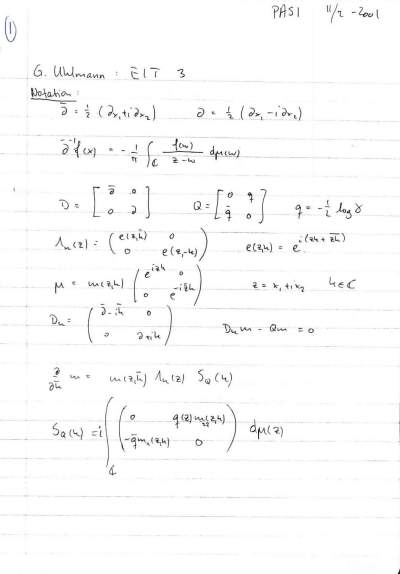 PASI 11/2 - 2001
①
G. Uhlmann : EIT 3
Notation :
∂̄ = ½ (∂x₁ + i∂x₂)   ∂ = ½ (∂x₁ - i∂x₂)
∂̄⁻¹f(x) = - 1/π ∫_ℂ f(w)/(z-w) dμ(w)
D = [ ∂̄ 0 ; 0 ∂ ]   Q = [ 0 q ; q̄ 0 ]   q = - ½ log γ
Λₖ(z) = ( e(z,k̄) 0 ; 0 e(z,-k) )   e(z,k) = e^{i(zk + z̄k̄)}
μ = m(z,k) ( e^{izk} 0 ; 0 e^{-iz̄k} )   z = x₁ + ix₂   k ∈ ℂ
Dₖ = ( ∂̄ - ik̄ 0 ; 0 ∂ + ik )   Dₖ m - Qm = 0
∂/∂k̄ m = m(z,k̄) Λₖ(z) S_Q(k)
S_Q(k) = i ∫_ℂ ( 0 q(z)m₂₂(z,k) ; -q̄ m₁₁(z,k) 0 ) dμ(z)